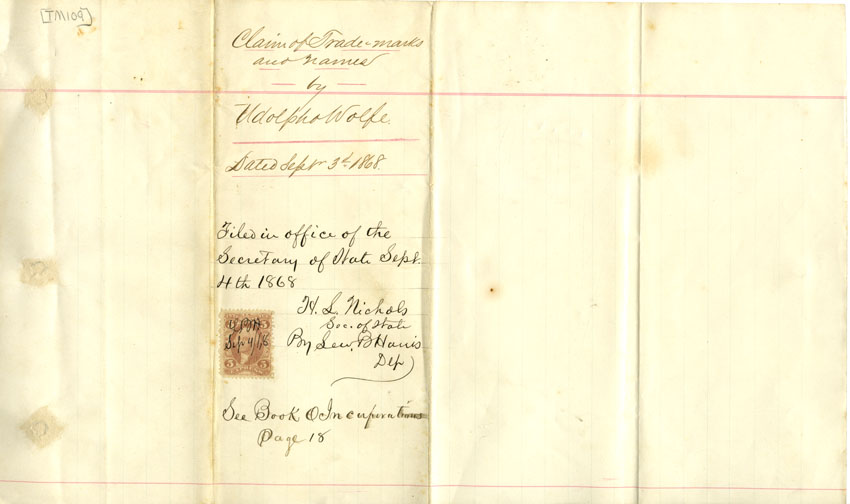 [TM109]
Claim of Trade-marks
and names
— by —
Udolpho Wolfe.
Dated Sept 3d. 1868.
Filed in office of the
Secretary of State Sept.
4th 1868
H. L. Nichols
Sec. of State
By Lew. B Harris
Dep
Sep 4/68
5 5
See Book O Incorporations
Page 18